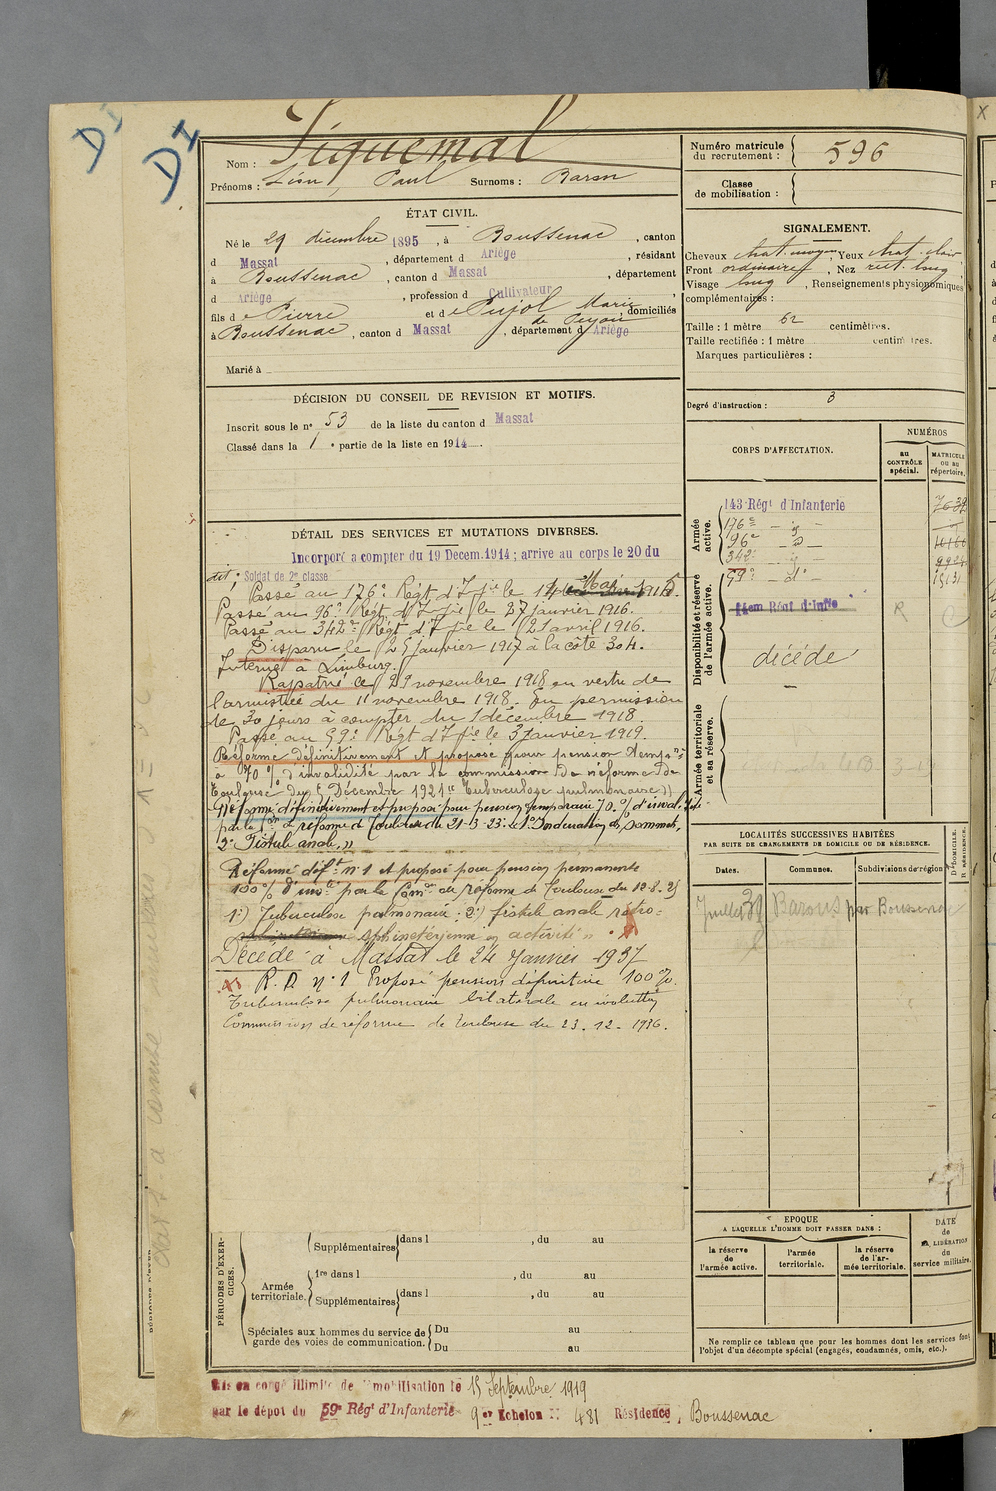 DI
DI
Nom : Piquemal
Prénoms : Léon, Paul Surnoms : Baron
Numéro matricule du recrutement : 596
Classe de mobilisation :
ÉTAT CIVIL.
Né le 29 décembre 1895, à Boussenac, canton
d Massat, département d Ariège, résidant
à Boussenac, canton d Massat, département
d Ariège, profession d Cultivateur,
fils de Pierre et de Pujol Marie, domiciliés
à Boussenac, canton d Massat, département d Ariège
Marié à
DÉCISION DU CONSEIL DE REVISION ET MOTIFS.
Inscrit sous le nº 53 de la liste du canton d Massat
Classé dans la 1e partie de la liste en 1914.
DÉTAIL DES SERVICES ET MUTATIONS DIVERSES.
Incorporé a compter du 19 Decem. 1914 ; arrive au corps le 20 du
dit ; Soldat de 2e classe
Passé au 176e Régt d'Ifie le Mai 1915.
Passé au 96e Régt d'Ifie le 27 janvier 1916.
Passé au 342e Régt d'Ifie le 21 avril 1916.
Disparu le 25 janvier 1917 à la côte 304.
Interné à Limburg.
Rapatrié le 29 novembre 1918 en vertu de
l'armistice du 11 novembre 1918. En permission
de 30 jours à compter du 1 décembre 1918.
Passé au 59e Régt d'Ifie le 3 Janvier 1919.
Réformé définitivement et proposé pour pension temp
à 70 % d'invalidité par la commission de réforme de
Toulouse du Décembre 1921 "Tuberculose pulmonaire"
Réformé définitivement et proposé pour pension temporaire 70 % d'inval.
par la Con de réforme de Toulouse du 21-3-23. 1º Induration des sommets,
2º Fistule anale."
Réformé défit nº 1 et proposé pour pension permanente
100 % d'invté par la Comon de réforme de Toulouse du 12-8-25
1º) Tuberculose pulmonaire ; 2º) fistule anale rétro-
sphinctérienne en activité"
Décédé à Massat le 24 Janvier 1937
R. D. nº 1 Proposé pension définitive 100 %.
Tuberculose pulmonaire bilatérale en évolution
Commission de réforme de Toulouse du 23.12.1936.
SIGNALEMENT.
Cheveux chat. moyen, Yeux chat. clair
Front ordinaire, Nez rect. long
Visage long, Renseignements physionomiques
complémentaires :
Taille : 1 mètre 62 centimètres.
Taille rectifiée : 1 mètre centimètres.
Marques particulières :
Degré d'instruction : 3
CORPS D'AFFECTATION.
NUMÉROS
au CONTRÔLE spécial.
MATRICULE ou au répertoire.
Armée active.
143 Régt d'Infanterie
176e - d -
96e - d -
342e - d -
59e - do -
Disponibilité et réserve de l'armée active.
14em Régt d'Infie
R
décédé
Armée territoriale et sa réserve.
LOCALITÉS SUCCESSIVES HABITÉES
PAR SUITE DE CHANGEMENTS DE DOMICILE OU DE RÉSIDENCE.
Dates. Communes. Subdivisions de région D. DOMICILE. R. RÉSIDENCE.
Juillet Barous par Boussenac
ÉPOQUE
A LAQUELLE L'HOMME DOIT PASSER DANS :
la réserve de l'armée active.
l'armée territoriale.
la réserve de l'armée territoriale.
DATE de LA LIBÉRATION du service militaire.
Ne remplir ce tableau que pour les hommes dont les services font
l'objet d'un décompte spécial (engagés, condamnés, omis, etc.).
PÉRIODES D'EXERCICES.
Supplémentaires dans l , du au
Armée territoriale.
1re dans l , du au
Supplémentaires dans l , du au
Spéciales aux hommes du service de garde des voies de communication.
Du au
Du au
Mis en congé illimité de démobilisation le 15 Septembre 1919
par le dépôt du 59e Régt d'Infanterie 9er Echelon Nº 481 Résidence, Boussenac